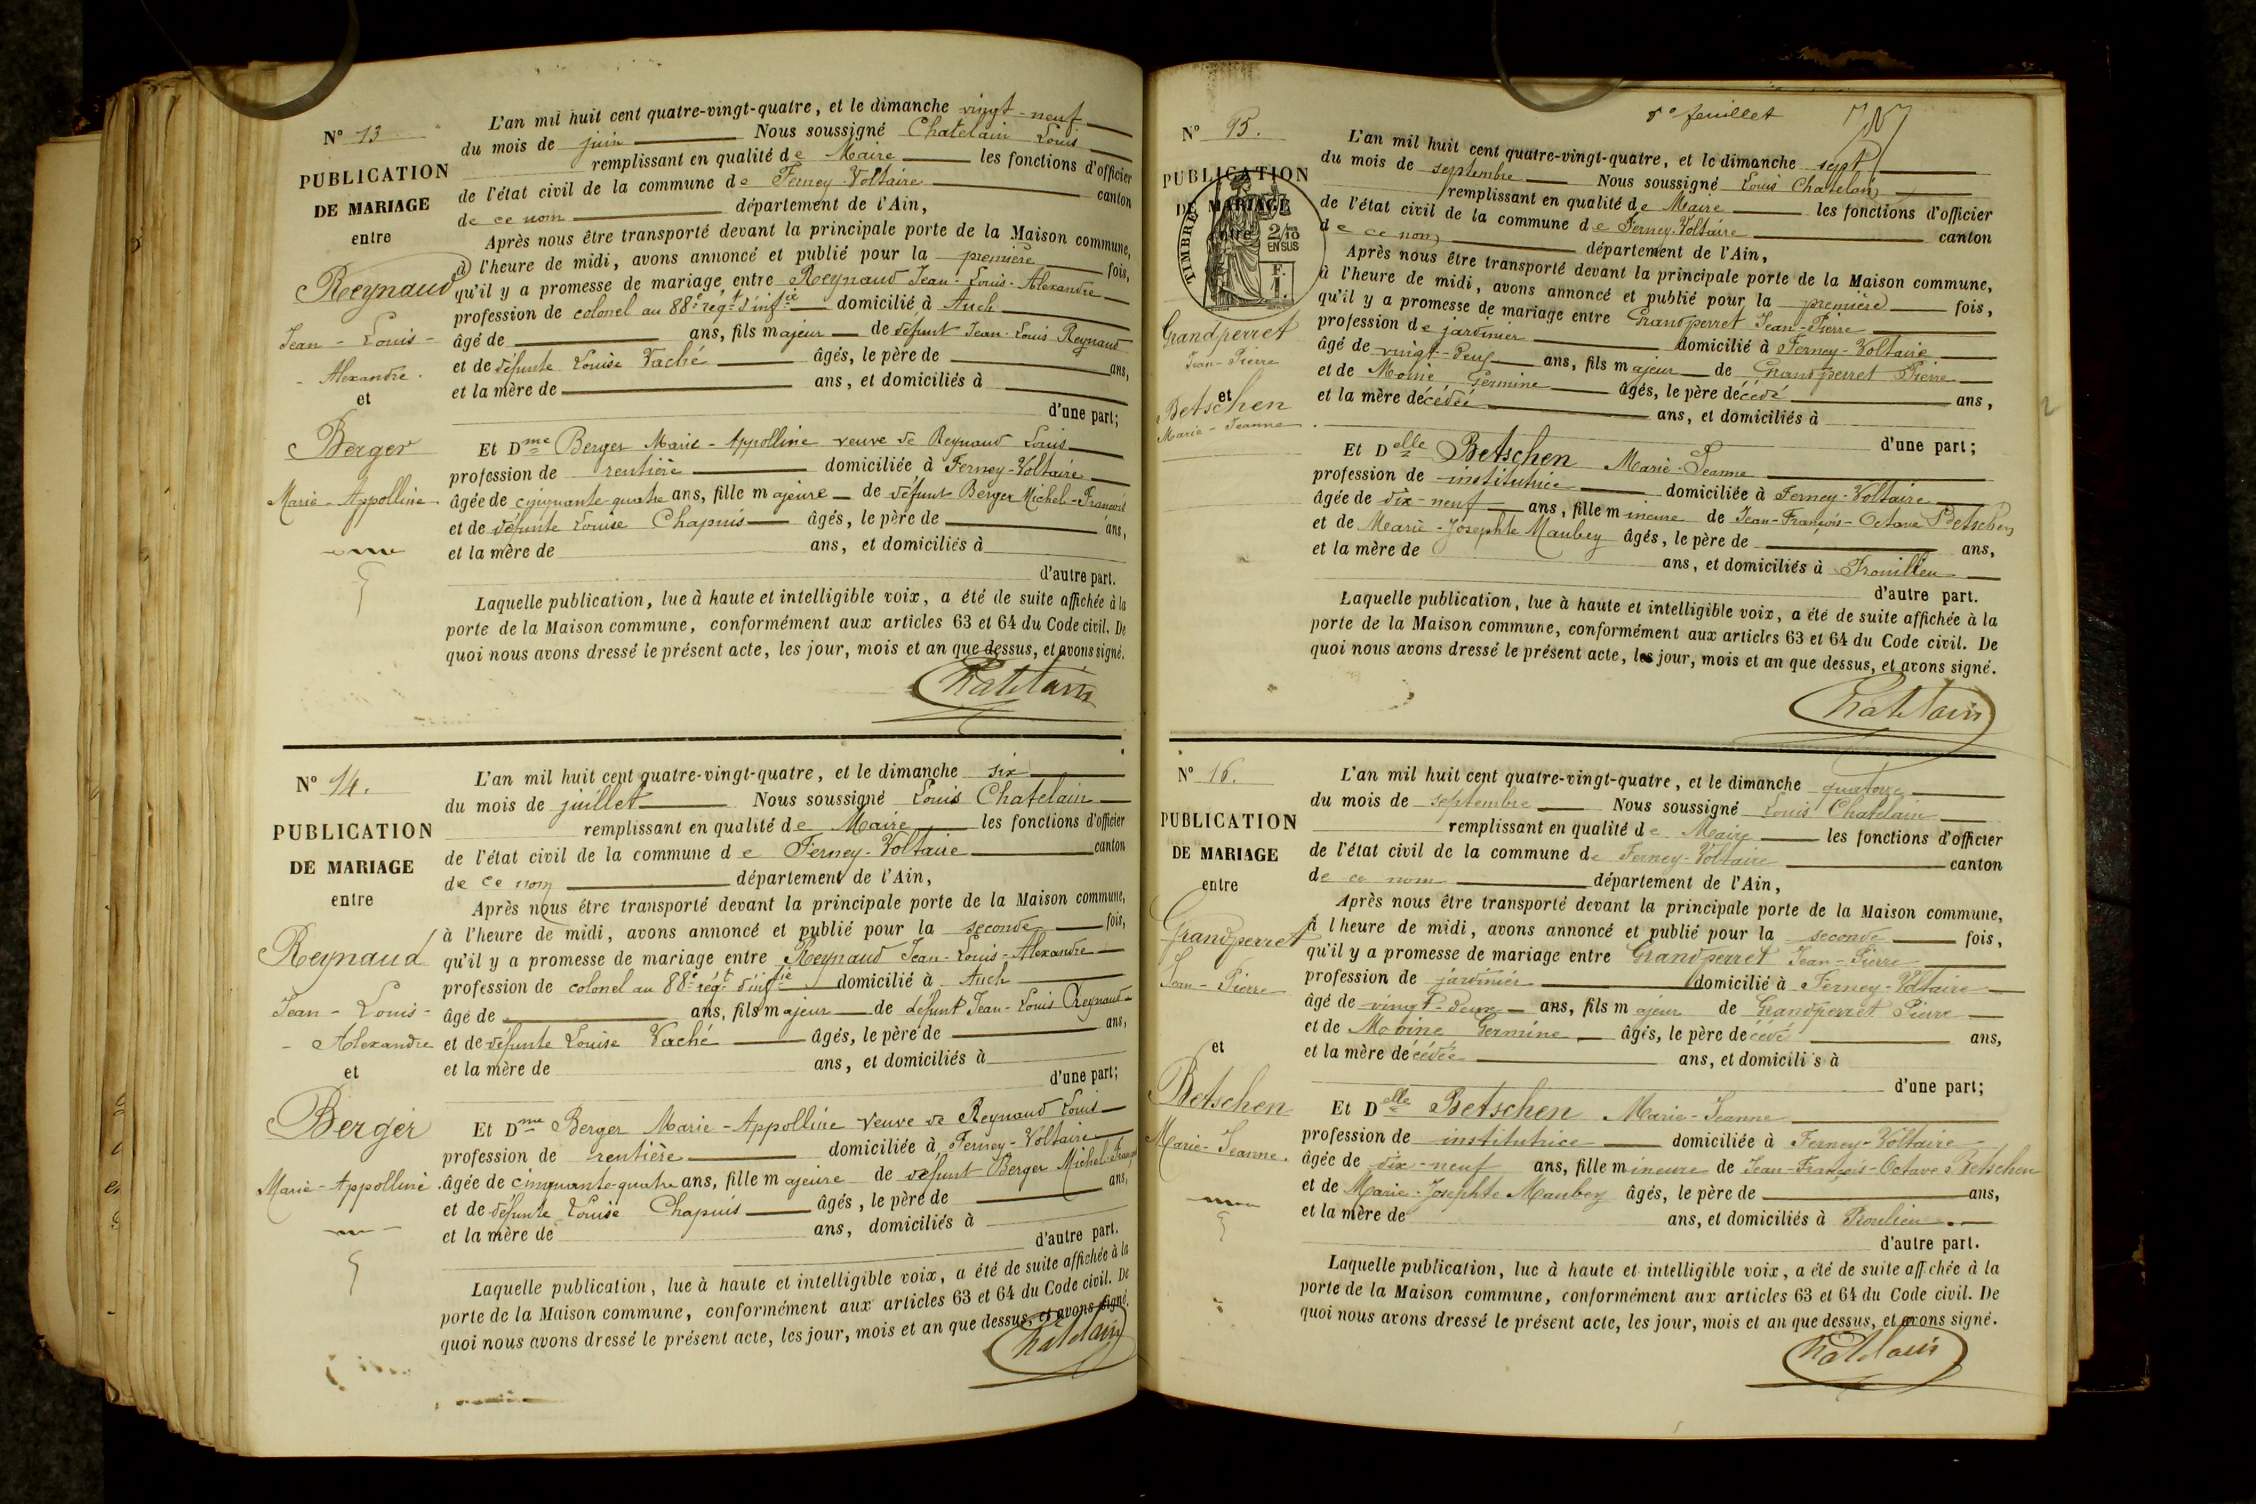 N° 13
PUBLICATION
DE MARIAGE
entre
Reynaud
Jean-Louis-
-Alexandre.
et
Berger
Marie-Appolline
L'an mil huit cent quatre-vingt-quatre, et le dimanche vingt-neuf
du mois de juin Nous soussigné Chatelain Louis
remplissant en qualité de Maire les fonctions d'officier
de l'état civil de la commune de Ferney-Voltaire canton
de ce nom département de l'Ain,
Après nous être transporté devant la principale porte de la Maison commune,
à l'heure de midi, avons annoncé et publié pour la première fois,
qu'il y a promesse de mariage entre Reynaud Jean-Louis-Alexandre
profession de colonel au 88e régt d'infie domicilié à Auch
âgé de ans, fils majeur de défunt Jean-Louis Reynaud
et de défunte Louise Vaché âgés, le père de ans,
et la mère de ans, et domiciliés à
d'une part;
Et Dme Berger Marie-Appolline veuve de Reynaud Louis
profession de rentière domiciliée à Ferney-Voltaire
âgée de cinquante-quatre ans, fille majeure de défunt Berger Michel-François
et de défunte Louise Chapuis âgés, le père de ans,
et la mère de ans, et domiciliés à
d'autre part.
Laquelle publication, lue à haute et intelligible voix, a été de suite affichée à la
porte de la Maison commune, conformément aux articles 63 et 64 du Code civil. De
quoi nous avons dressé le présent acte, les jour, mois et an que dessus, et avons signé.
Chatelain
N° 14.
PUBLICATION
DE MARIAGE
entre
Reynaud
Jean-Louis-
-Alexandre
et
Berger
Marie-Appolline.
L'an mil huit cent quatre-vingt-quatre, et le dimanche six
du mois de juillet Nous soussigné Louis Chatelain
remplissant en qualité de Maire les fonctions d'officier
de l'état civil de la commune de Ferney-Voltaire canton
de ce nom département de l'Ain,
Après nous être transporté devant la principale porte de la Maison commune,
à l'heure de midi, avons annoncé et publié pour la seconde fois,
qu'il y a promesse de mariage entre Reynaud Jean-Louis-Alexandre
profession de colonel au 88e régt d'infie domicilié à Auch
âgé de ans, fils majeur de défunt Jean-Louis Reynaud
et de défunte Louise Vaché âgés, le père de ans,
et la mère de ans, et domiciliés à
d'une part;
Et Dme Berger Marie-Appolline veuve de Reynaud Louis
profession de rentière domiciliée à Ferney-Voltaire
âgée de cinquante-quatre ans, fille majeure de défunt Berger Michel-François
et de défunte Louise Chapuis âgés, le père de ans,
et la mère de ans, domiciliés à
d'autre part.
Laquelle publication, lue à haute et intelligible voix, a été de suite affichée à la
porte de la Maison commune, conformément aux articles 63 et 64 du Code civil. De
quoi nous avons dressé le présent acte, les jour, mois et an que dessus, et avons signé.
Chatelain
8e feuillet
N° 15.
PUBLICATION
DE MARIAGE
entre
TIMBRE
2/10
EN SUS
F.
1.
Grandperret
Jean-Pierre
et
Betschen
Marie-Jeanne.
L'an mil huit cent quatre-vingt-quatre, et le dimanche sept
du mois de septembre Nous soussigné Louis Chatelain
remplissant en qualité de Maire les fonctions d'officier
de l'état civil de la commune de Ferney-Voltaire canton
de ce nom département de l'Ain,
Après nous être transporté devant la principale porte de la Maison commune,
à l'heure de midi, avons annoncé et publié pour la première fois,
qu'il y a promesse de mariage entre Grandperret Jean-Pierre
profession de jardinier domicilié à Ferney-Voltaire
âgé de vingt-deux ans, fils majeur de Grandperret Pierre
et de Germine âgés, le père décédé ans,
et la mère décédée ans, et domiciliés à
d'une part;
Et Delle Betschen Marie-Jeanne
profession de institutrice domiciliée à Ferney-Voltaire
âgée de dix-neuf ans, fille mineure de Jean-François-Octave Betschen
et de Marie-Josephte Maubey âgés, le père de ans,
et la mère de ans, et domiciliés à
d'autre part.
Laquelle publication, lue à haute et intelligible voix, a été de suite affichée à la
porte de la Maison commune, conformément aux articles 63 et 64 du Code civil. De
quoi nous avons dressé le présent acte, les jour, mois et an que dessus, et avons signé.
Chatelain
N° 16.
PUBLICATION
DE MARIAGE
entre
Grandperret
Jean-Pierre
et
Betschen
Marie-Jeanne.
L'an mil huit cent quatre-vingt-quatre, et le dimanche quatorze
du mois de septembre Nous soussigné Louis Chatelain
remplissant en qualité de Maire les fonctions d'officier
de l'état civil de la commune de Ferney-Voltaire canton
de ce nom département de l'Ain,
Après nous être transporté devant la principale porte de la Maison commune,
à l'heure de midi, avons annoncé et publié pour la seconde fois,
qu'il y a promesse de mariage entre Grandperret Jean-Pierre
profession de jardinier domicilié à Ferney-Voltaire
âgé de vingt-deux ans, fils majeur de Grandperret Pierre
et de Germine âgés, le père décédé ans,
et la mère décédée ans, et domiciliés à
d'une part;
Et Delle Betschen Marie-Jeanne
profession de institutrice domiciliée à Ferney-Voltaire
âgée de dix-neuf ans, fille mineure de Jean-François-Octave Betschen
et de Marie-Josephte Maubey âgés, le père de ans,
et la mère de ans, et domiciliés à
d'autre part.
Laquelle publication, lue à haute et intelligible voix, a été de suite affichée à la
porte de la Maison commune, conformément aux articles 63 et 64 du Code civil. De
quoi nous avons dressé le présent acte, les jour, mois et an que dessus, et avons signé.
Chatelain